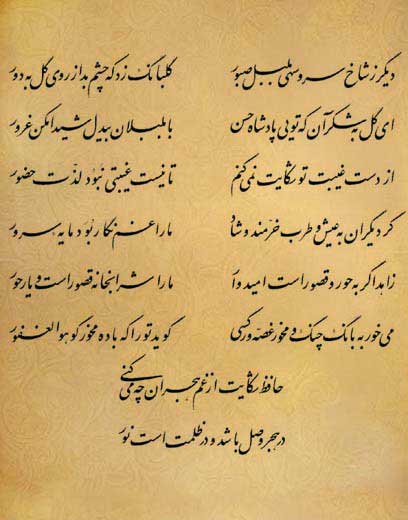 دیگر ز شاخ سرو سهی بلبل صبور گلبانگ زد که چشم بد از روی گل به دور
ای گل به شکر آن که تویی پادشاه حسن با بلبلان بیدل شیدا مکن غرور
از دست غیبت تو شکایت نمی‌کنم تا نیست غیبتی نبود لذت حضور
گر دیگران به عیش و طرب خرمند و شاد ما را غم نگار بود مایه سرور
زاهد اگر به حور و قصور است امیدوار ما را شرابخانه قصور است و یار حور
می خور به بانگ چنگ و مخور غصه ور کسی گوید تو را که باده مخور گو هوالغفور
حافظ شکایت از غم هجران چه می‌کنی
در هجر وصل باشد و در ظلمت است نور